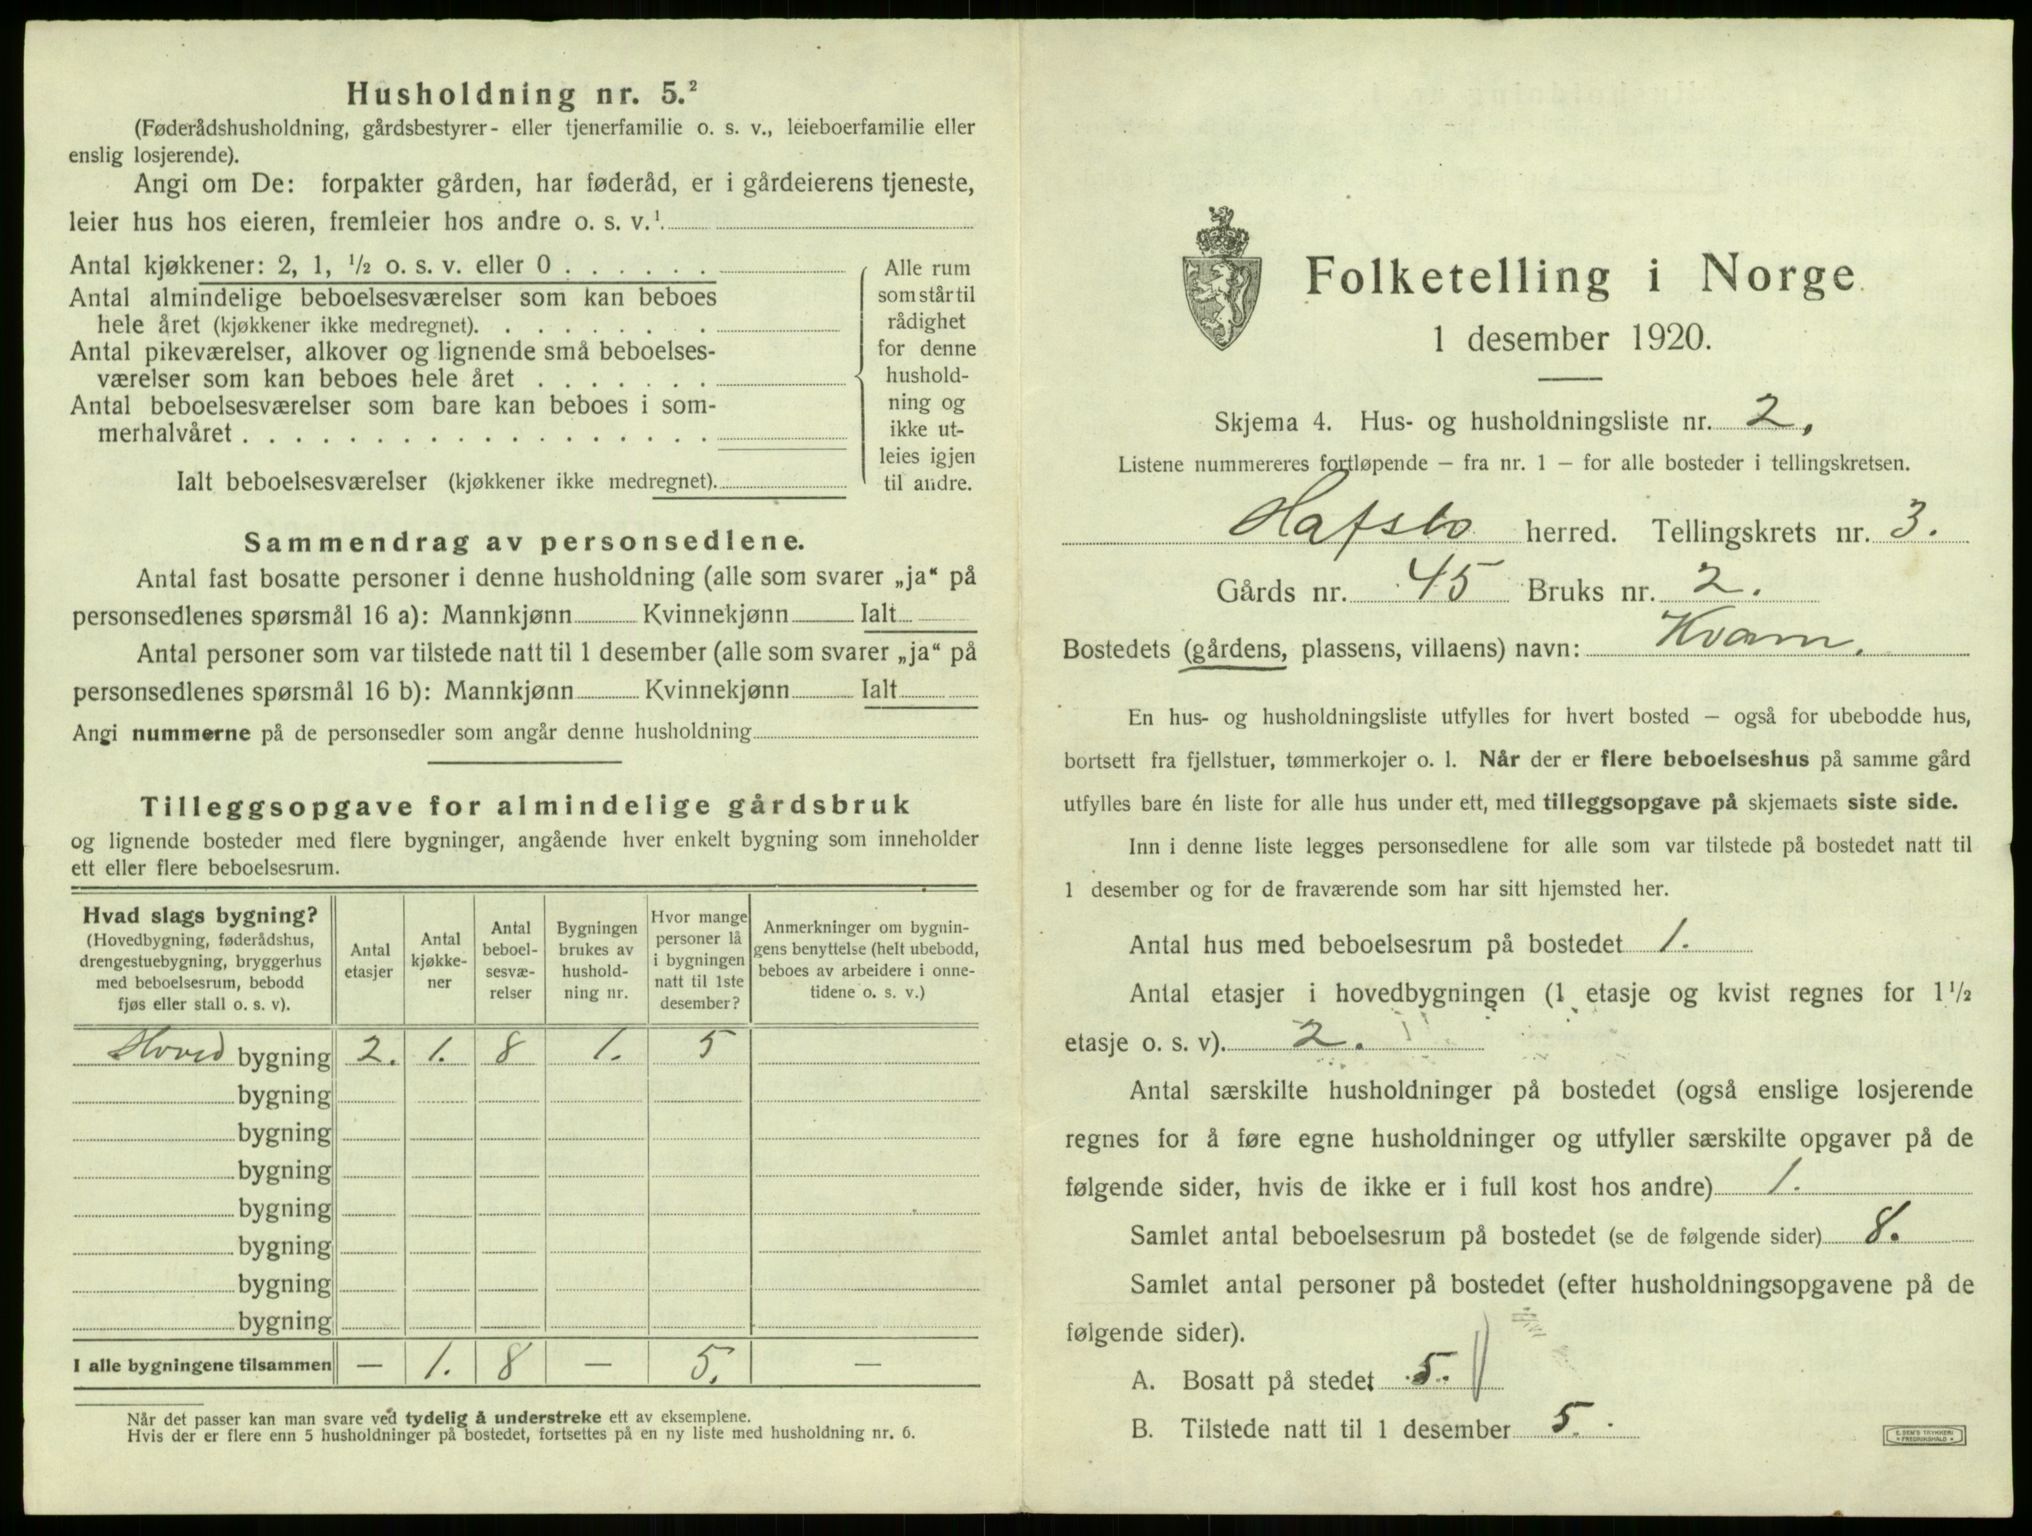 Husholdning nr. 5.²
(Føderådshusholdning, gårdsbestyrer- eller tjenerfamilie o. s. v., leieboerfamilie eller
enslig losjerende).
Angi om De: forpakter gården, har føderåd, er i gårdeierens tjeneste,
leier hus hos eieren, fremleier hos andre o. s. v.¹
Antal kjøkkener: 2, 1, ½ o. s. v. eller 0 . . . . . .
Antal almindelige beboelsesværelser som kan beboes
hele året (kjøkkener ikke medregnet). . . . . . . . .
Antal pikeværelser, alkover og lignende små beboelses-
værelser som kan beboes hele året . . . . . . .
Antal beboelsesværelser som bare kan beboes i som-
merhalvåret . . . . . . . . . . . . . . . . . .
Ialt beboelsesværelser (kjøkkener ikke medregnet).
Alle rum
som står til
rådighet
for denne
hushold-
ning og
ikke ut-
leies igjen
til andre.
Sammendrag av personsedlene.
Antal fast bosatte personer i denne husholdning (alle som svarer „ja“ på
personsedlenes spørsmål 16 a): Mannkjønn Kvinnekjønn Ialt
Antal personer som var tilstede natt til 1 desember (alle som svarer „ja“ på
personsedlenes spørsmål 16 b): Mannkjønn Kvinnekjønn Ialt
Angi nummerne på de personsedler som angår denne husholdning
Tilleggsopgave for almindelige gårdsbruk
og lignende bosteder med flere bygninger, angående hver enkelt bygning som inneholder
ett eller flere beboelsesrum.
Hvad slags bygning?
(Hovedbygning, føderådshus,
drengestuebygning, bryggerhus
med beboelsesrum, bebodd
fjøs eller stall o. s. v).
Antal
etasjer
Antal
kjøkke-
ner
Antal
beboel-
sesvæ-
relser
Bygningen
brukes av
hushold-
ning nr.
Hvor mange
personer lå
i bygningen
natt til 1ste
desember?
Anmerkninger om bygnin-
gens benyttelse (helt ubebodd,
beboes av arbeidere i onne-
tidene o. s. v.)
Hoved bygning 2. 1. 8 1. 5
bygning
bygning
bygning
bygning
bygning
bygning
bygning
I alle bygningene tilsammen — 1. 8 — 5. —
Når det passer kan man svare ved tydelig å understreke ett av eksemplene.
Hvis der er flere enn 5 husholdninger på bostedet, fortsettes på en ny liste med husholdning nr. 6.
Folketelling i Norge
1 desember 1920.
Skjema 4. Hus- og husholdningsliste nr. 2.
Listene nummereres fortløpende — fra nr. 1 — for alle bosteder i tellingskretsen.
Hafslo herred. Tellingskrets nr. 3.
Gårds nr. 45 Bruks nr. 2.
Bostedets (gårdens, plassens, villaens) navn: Kvam.
En hus- og husholdningsliste utfylles for hvert bosted — også for ubebodde hus,
bortsett fra fjellstuer, tømmerkojer o. l. Når der er flere beboelseshus på samme gård
utfylles bare én liste for alle hus under ett, med tilleggsopgave på skjemaets siste side.
Inn i denne liste legges personsedlene for alle som var tilstede på bostedet natt til
1 desember og for de fraværende som har sitt hjemsted her.
Antal hus med beboelsesrum på bostedet 1.
Antal etasjer i hovedbygningen (1 etasje og kvist regnes for 1½
etasje o. s. v). 2.
Antal særskilte husholdninger på bostedet (også enslige losjerende
regnes for å føre egne husholdninger og utfyller særskilte opgaver på de
følgende sider, hvis de ikke er i full kost hos andre) 1.
Samlet antal beboelsesrum på bostedet (se de følgende sider) 8.
Samlet antal personer på bostedet (efter husholdningsopgavene på de
følgende sider).
A. Bosatt på stedet 5.
B. Tilstede natt til 1 desember 5.
E. SEM'S TRYKKERI
FREDRIKSHALD